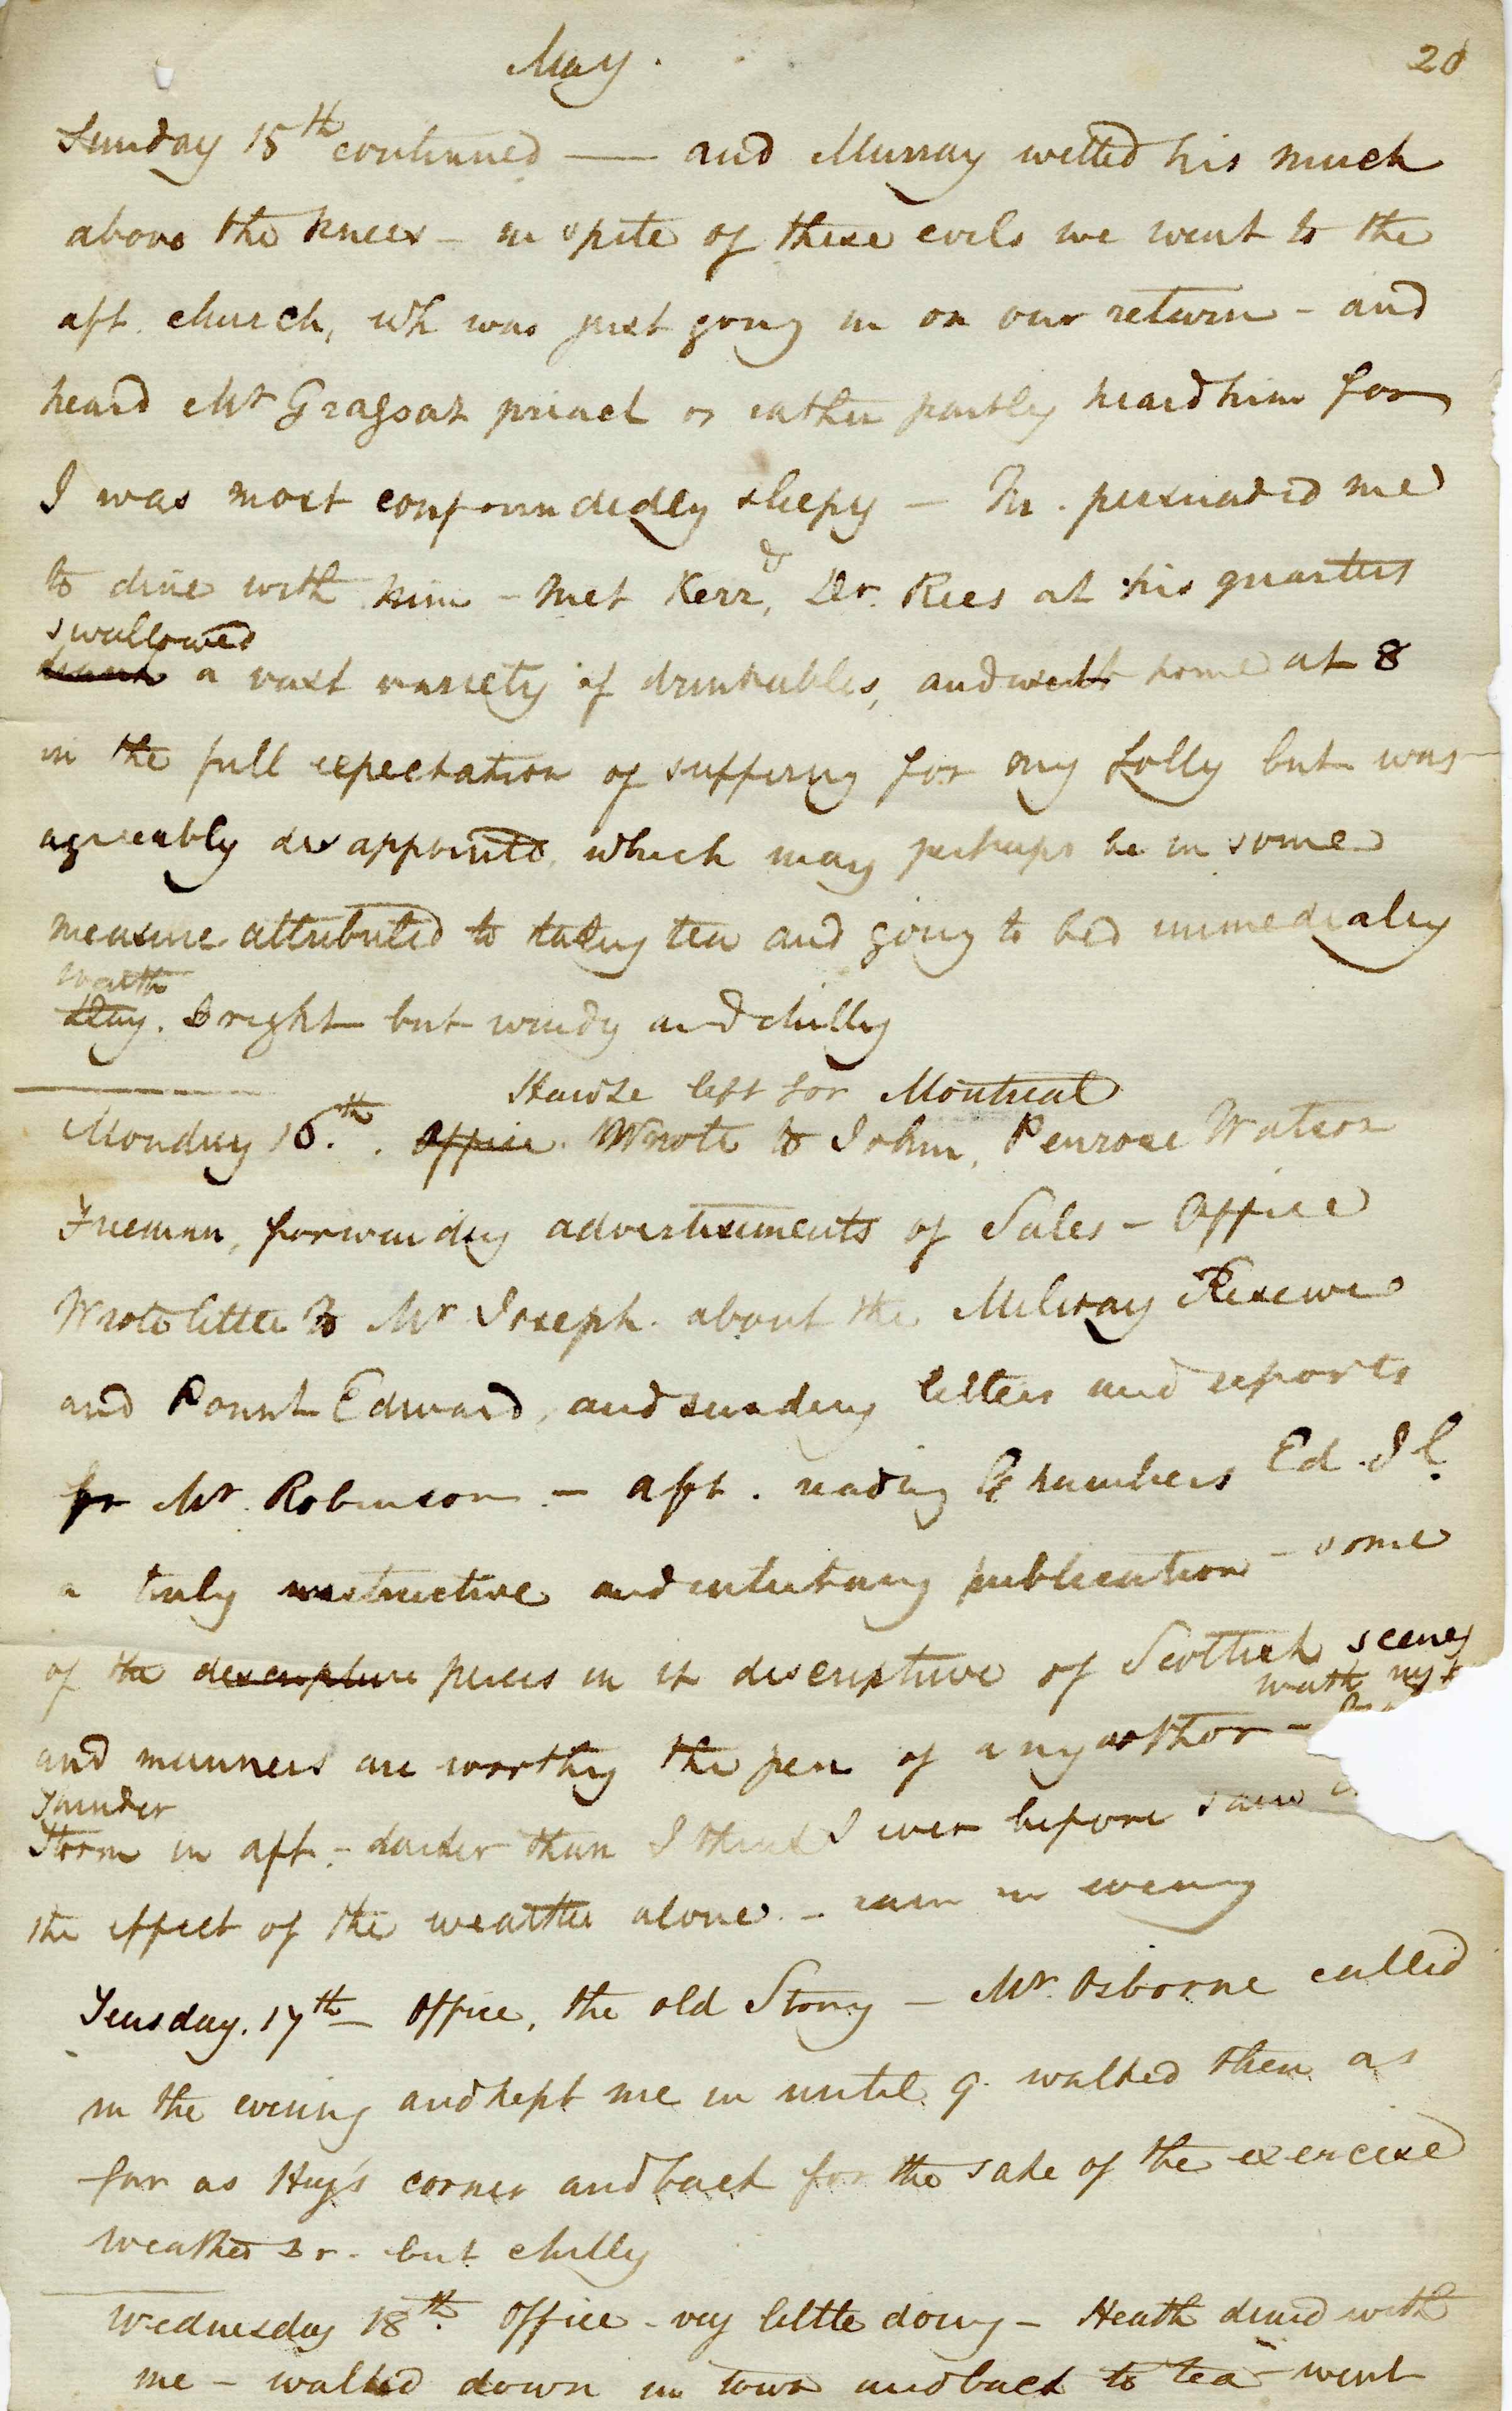 May.
20
Sunday 15th continued — and Murray wetted his much
above the knees – in spite of these evils we went to the
aft. church, wh was just going in on our return – and
heard Mr preach or rather partly heard him for
I was most confoundedly sleepy – M. persuaded me
to dine with him – met Kerr, & Dr. Rees at his quarters
swallowed
drank a vast variety of drinkables, and went home at 8
in the full expectation of suffering for my folly but was
agreeably disappointd, which may perhaps be in some
measure attributed to taking tea and going to bed immedialy
weath
Day. Bright but windy and chilly
Hawke left for Montreal
Monday 16th. Office. Wrote to John, Penrose Watson
Freeman, forwarding advertisements of Sales – Office
Wrote letter to Mr Joseph. about the Military Reserve
and Point Edward, and sundry letters and reports
for Mr. Robinson. – aft. reading Chambers Ed. Jl.
a truly instructive and entertaing publication – some
of the descriptive pieces in it descriptive of Scottish scenes
and manners are worthy the pen of any author –
weath
Thunder
Storm in aft. – darker than I think I ever before saw
the effect of the weather alone. – rain in evening
Teusday. 17th – Office, the old Story – Mr. Osborne called
in the evening and kept me in until 9. walked then as
far as Hay's corner and back for the sake of the exercise
weather Br. but chilly
Wednesday 18th. Office – vey little doing – Heath dined with
me – walked down in town and back to tea – went